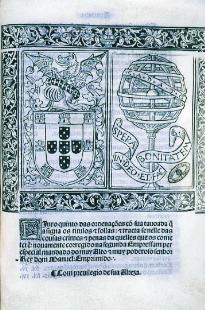 SPERA
IN DEO
BONITATEM
Liuro quinto das ordenações cõ sua tauoada q̃
asigna os titulos ⁊ folhas: ⁊ tracta se nelle das
cousas crimes: ⁊ penas daquelles que os come
tẽ: ⁊ nouamente corregido na segunda Empressam per
especial mandado do muy Alto ⁊ muy poderoso senhor
Rey dom Manuel Emprimido.
¶ Com priuilegio de sua Alteza.